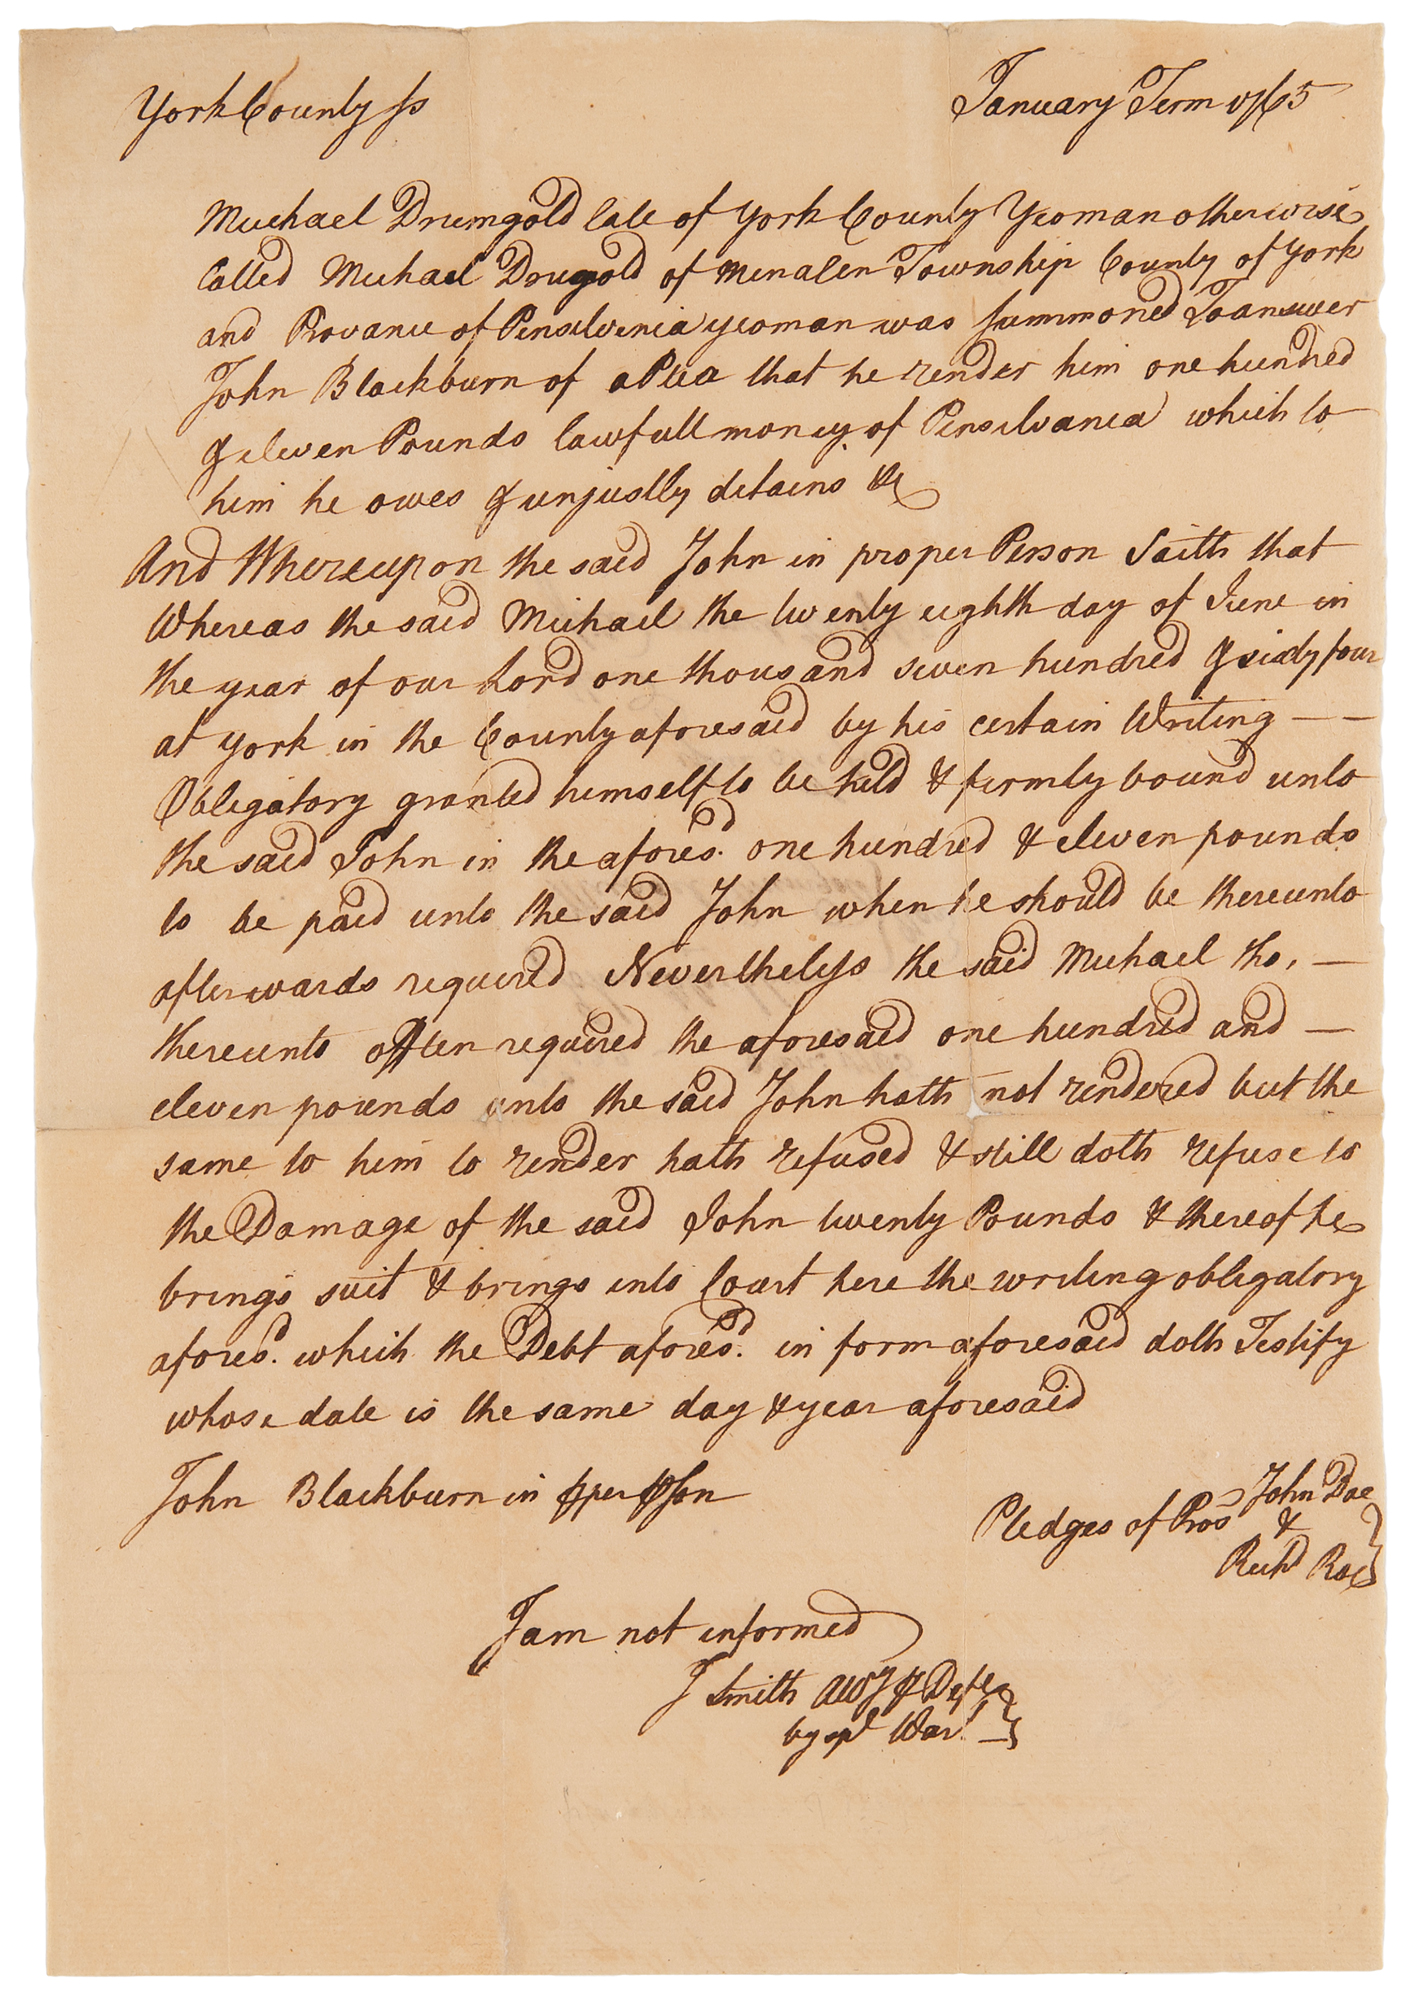 York County ss
January Term 1765
Michael Drumgold late of York County Yeoman otherwise
Called Michael Drugold of Menalen Township County of York
and Provance of Pensilvenia yeoman was summoned To answer
John Blackburn of a Plea that he render him one hundred
& eleven Pounds lawfull money of Pensilvania which to
him he owes & unjustly detains &c
And Whereupon the said John in proper Person Saith that
Whereas the said Michael the twenty eighth day of June in
the year of our Lord one thousand seven hundred & sixty four
at York in the County aforesaid by his certain Writing — —
Obligatory granted himself to be held & firmly bound unto
the said John in the afores.d one hundred & eleven pounds
to be paid unto the said John when he should be thereunto
afterwards required Nevertheless the said Michael tho, —
thereunto often required the aforesaid one hundred and —
eleven pounds unto the said John hath not rendered but the
same to him to render hath refused & still doth refuse to
the Damage of the said John twenty Pounds & thereof he
brings suit & brings into Court here the writing obligatory
afores.d which the Debt afores.d in form aforesaid doth Testify
whose date is the same day & year aforesaid
John Blackburn in pper pson
Pledges of Pros John Doe
&
Rich.d Roe
I am not informed
J Smith Att.y p Def.t
by spl War.t